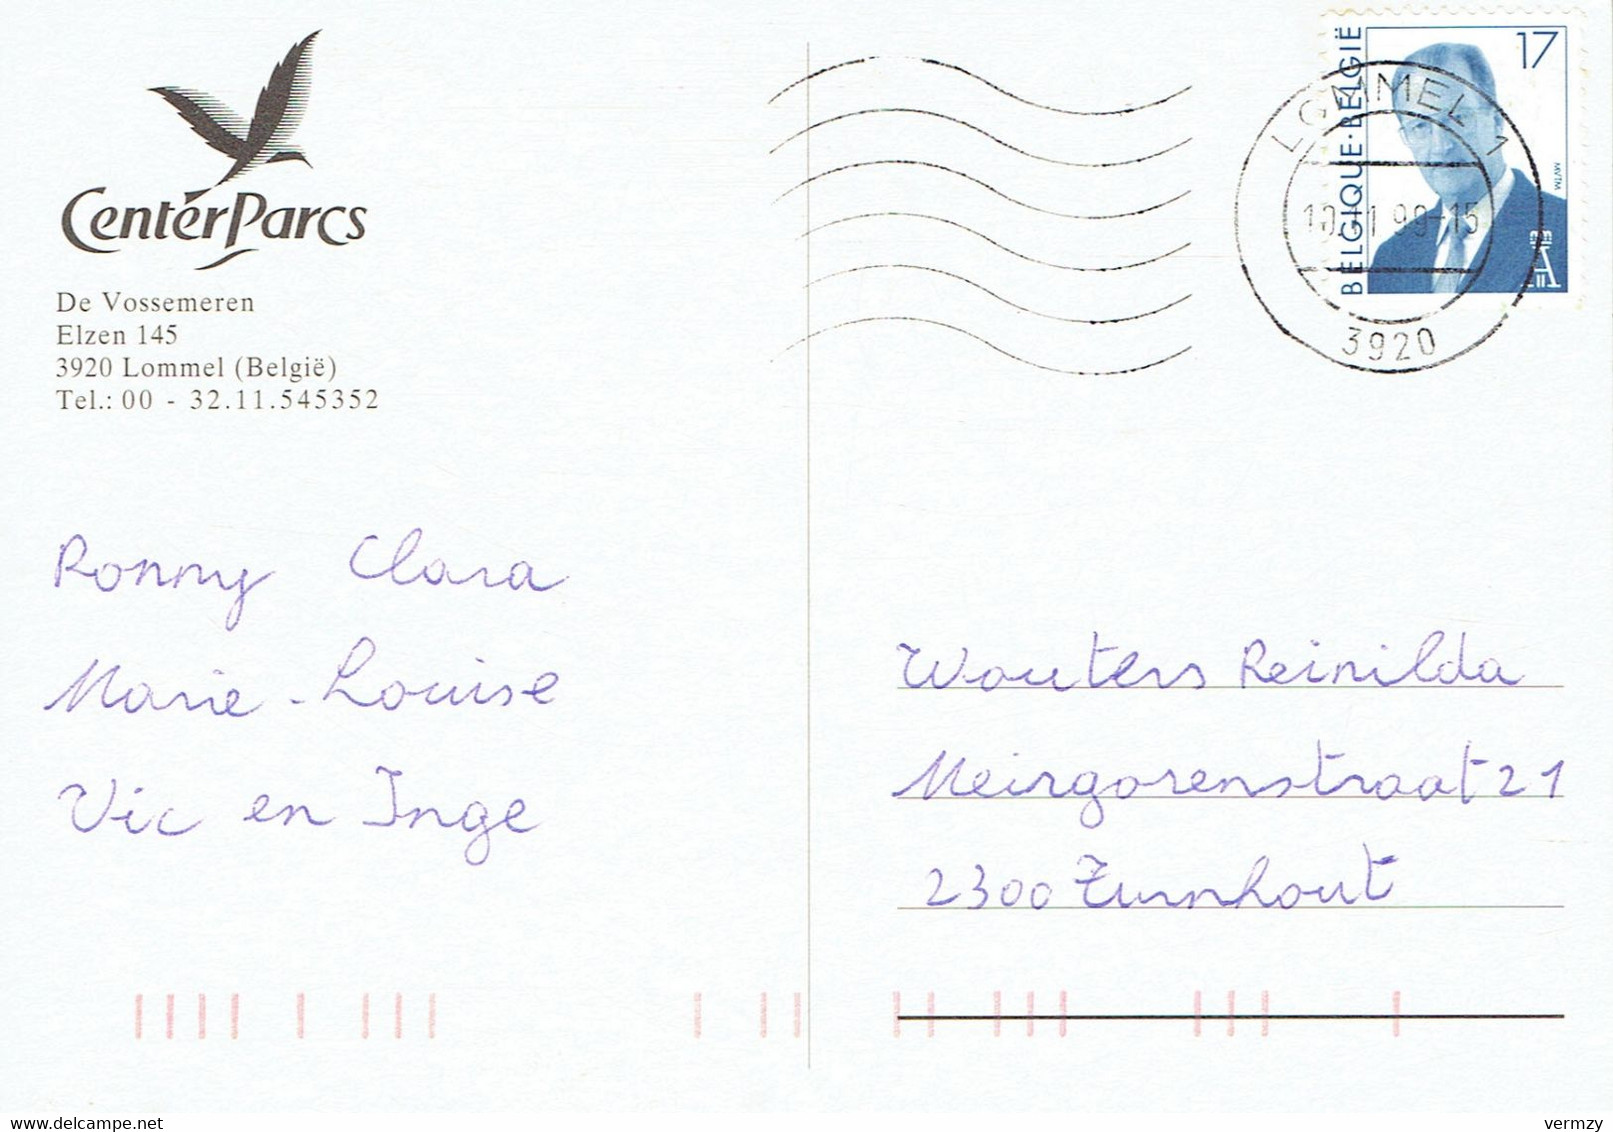 CenterParcs
De Vossemeren
Elzen 145
3920 Lommel (België)
Tel.: 00 - 32.11.545352
Ronny Clara
Marie-Louise
Vic en Inge
BELGIQUE·BELGIË
17
MVTM
LOMMEL 1
99-15
3920
Wouters Reinilda
Meirgorenstraat 21
2300 Turnhout
delcampe.net
vermzy